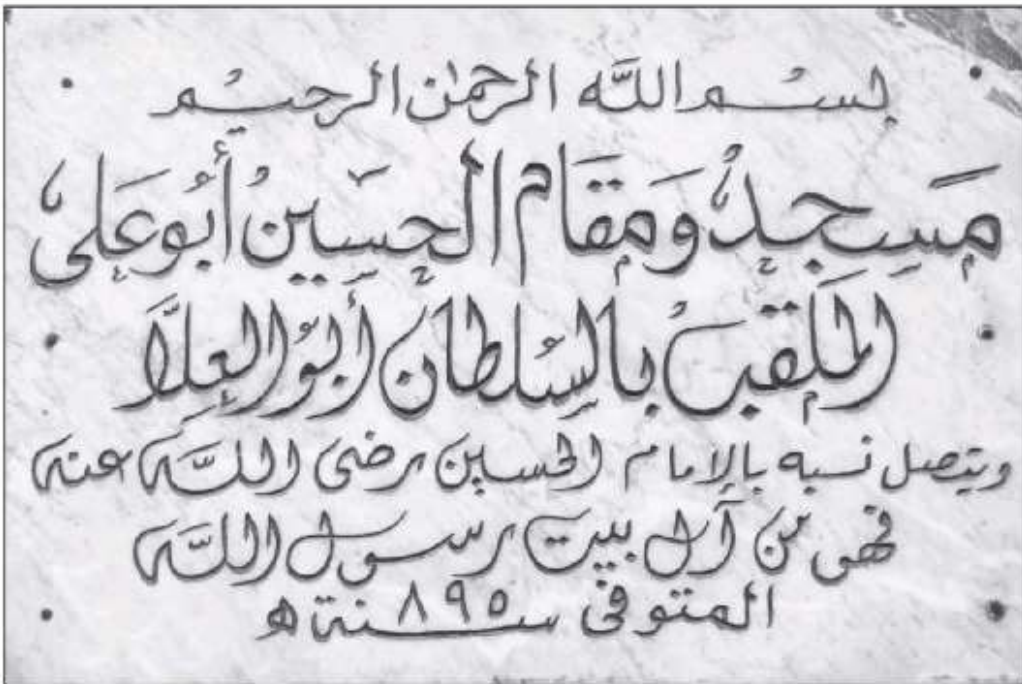 بسم الله الرحمن الرحيم
مَسجدُ وَمقَام الحسَين أبُو عَلى
الملقب بالسُلطان أبُو العِلاَّ
ويتصل نسبه بالإمام الحسين رضى اللّه عنه
فهو من آل بيت رسول اللّه
المتوفى سنة ٨٩٥ ه